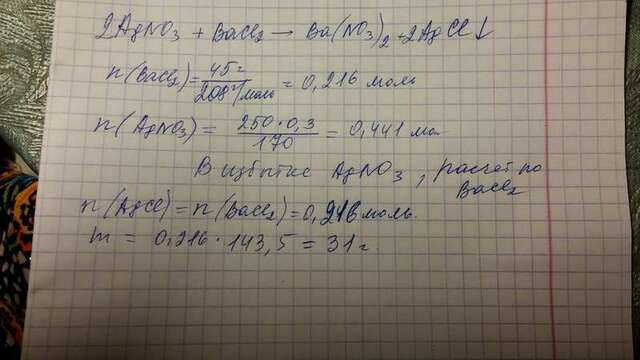 2AgNO₃ + BaCl₂ → Ba(NO₃)₂ + 2AgCl↓
n(BaCl₂) = 45 г / 208 г/моль = 0,216 моль
n(AgNO₃) = 250·0,3 / 170 = 0,441 мол
В избытке AgNO₃, расчет по
BaCl₂
n(AgCl) = n(BaCl₂) = 0,216 моль.
m = 0,216 · 143,5 = 31 г.